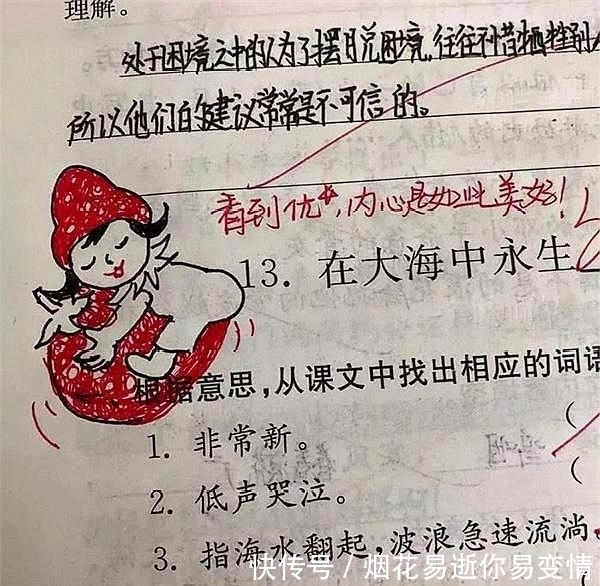 理解。
处于困境之中的人为了摆脱困境,往往不惜牺牲别人
所以他们的建议常常是不可信的。
看到优*,内心是如此美好!
13. 在大海中永生
根据意思,从课文中找出相应的词语
1. 非常新。 (
2. 低声哭泣。 (
3. 指海水翻起,波浪急速流淌。
快传号 / 烟花易逝你易变情